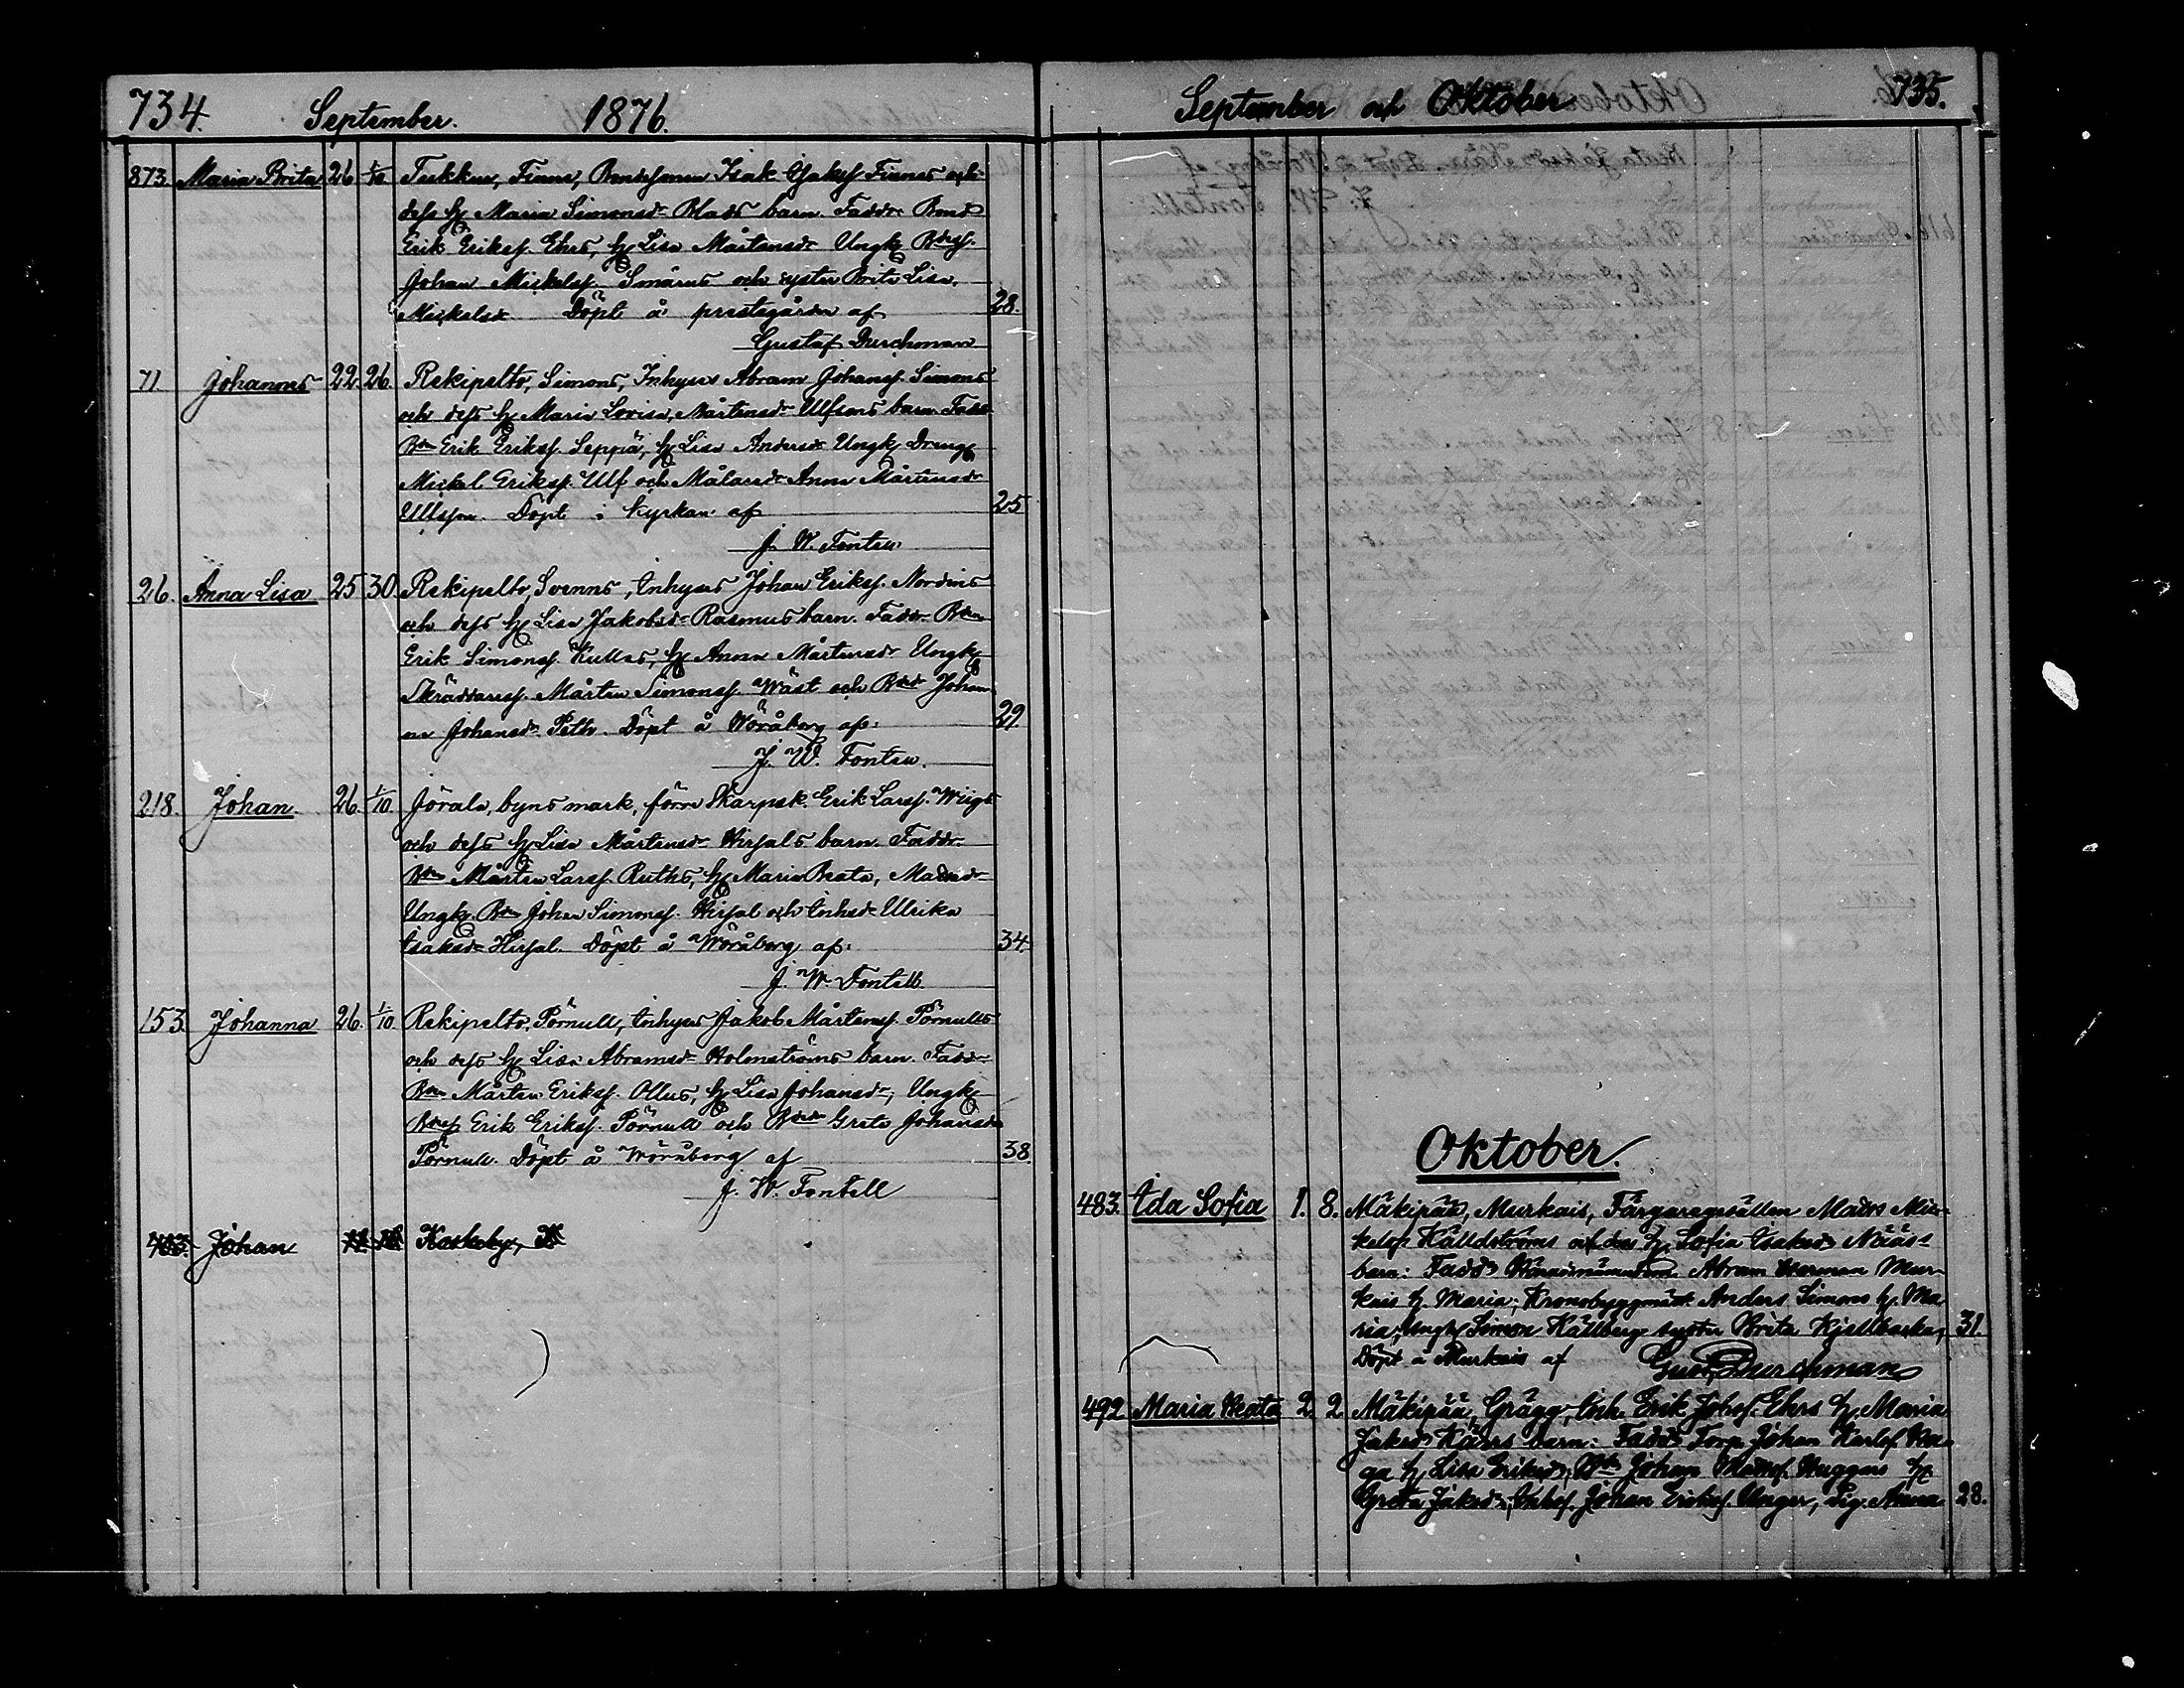 734. September. 1876.
873 Maria Brita 26 1/10 Tuckur, Finne, Bondesonen Isak Isakss. Finnes och
dess h. Maria Simonsdr Blads barn. Faddr. Bond
Erik Erikss. Ehrs, h. Lisa Mårtensdr Ungk. Bdess.
Johan Mickelss. Smårus och syster Brita Lisa,
Mickelsd. Döpt å prestgården af 28.
Gustaf Durchman
71 Johannes 22 26. Rekipelto, Simons, Inhyses Abram Johanss. Simons
och dess h. Maria Lovisa, Mårtensdr Ulfsons barn. Fadd.
Bdn Erik Erikss. Seppä, h. Lisa Andersdr Ungk. Dreng
Mickel Erikss. Ulf och Målaredr Anna Mårtensdr
Ullsson. Döpt i kyrkan af 25
J. W. Fontell
26. Anna Lisa 25 30. Rekipelto, Svenns, Inhyses Johan Erikss. Nordins
och dess h. Lisa Jakobsdr Rasmus barn. Faddr. Bdn
Erik Simonss. Kullas, h. Anna Mårtensdr Ungk.
Skräddaress. Mårten Simonss. Wäst och Bdedr Johan-
na Johansdr Pelto. Döpt å Wöråberg af: 29
J. W. Fontell.
218. Johan. 26. 1/10. Jörala, byns mark, förre Skarpsk. Erik Larss. Wiigs
och dess h. Lisa Mårtensdr Hirsals barn. Faddr.
Bdn Mårten Larss. Ruths, h. Maria Beata, Madsdr
Ungk. Bdn Johan Simonss. Hirsal och Inhsdr Ulrika
Isaksdr Hirsal. Döpt å Wöråberg af: 34.
J. W. Fontell
153. Johanna 26. 1/10. Rekipelto, Pörnull, Inhyses Jakob Mårtenss. Pörnulls
och dess h. Lisa Abramsdr Holmströms barn. Faddr.
Bdn Mårten Erikss. Ollus, h. Lisa Johansdr, Ungk.
Bdess Erik Erikss. Pörnull och Bdedr Greta Johansdr
Pörnull. Döpt å Wöråberg af 38.
J. W. Fontell
Johan Koskeby,
September och Oktober 735.
Oktober.
483. Ida Sofia 1. 8. Mäkipää, Murkais, Färgaregesällen Mads Mic-
kelss Källdströms och dess h. Sofia Isaksdr
barn: Faddr Abram Herman Mur-
kais h. Maria; Kronobyggmäst. Anders Simons h. Ma
ria; Ungk. Simon Källberg syster Brita Kjellbacka, 31.
Döpt å Murkais af Gust. Durchman
492 Maria Beata 2. 2. Mäkipää, Grägg, Inh. Erik Jobss. Ehrs h. Maria
Jaksdr Kärrs barn: Faddr Torp. Johan Karlss. Ha-
ga h. Lisa Eriksdr; Bdn Johan Madss. Huggars h.
Greta Jaksdr; Inhss. Johan Erikss. Unger, Pig. Anna 28.